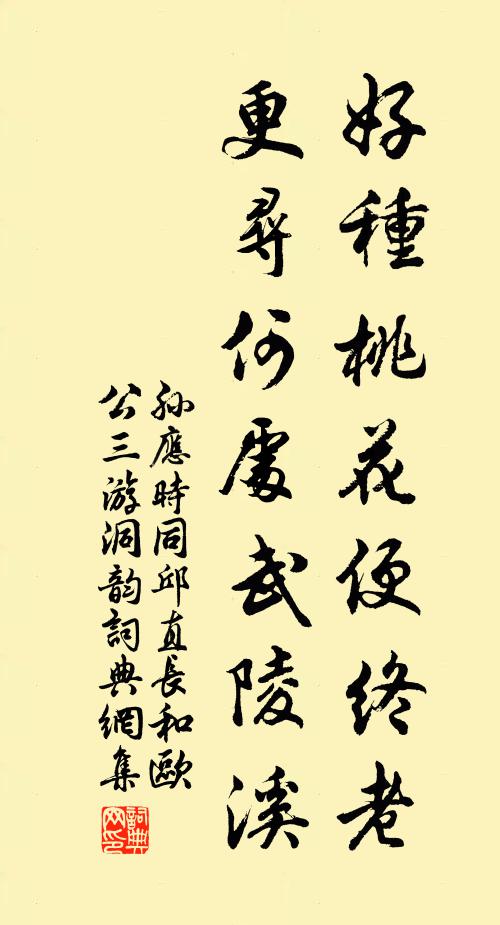 好種桃花便終老
更尋何處武陵溪
孫應時同邱直長和歐
公三游洞韵詞典網集
詞典網印